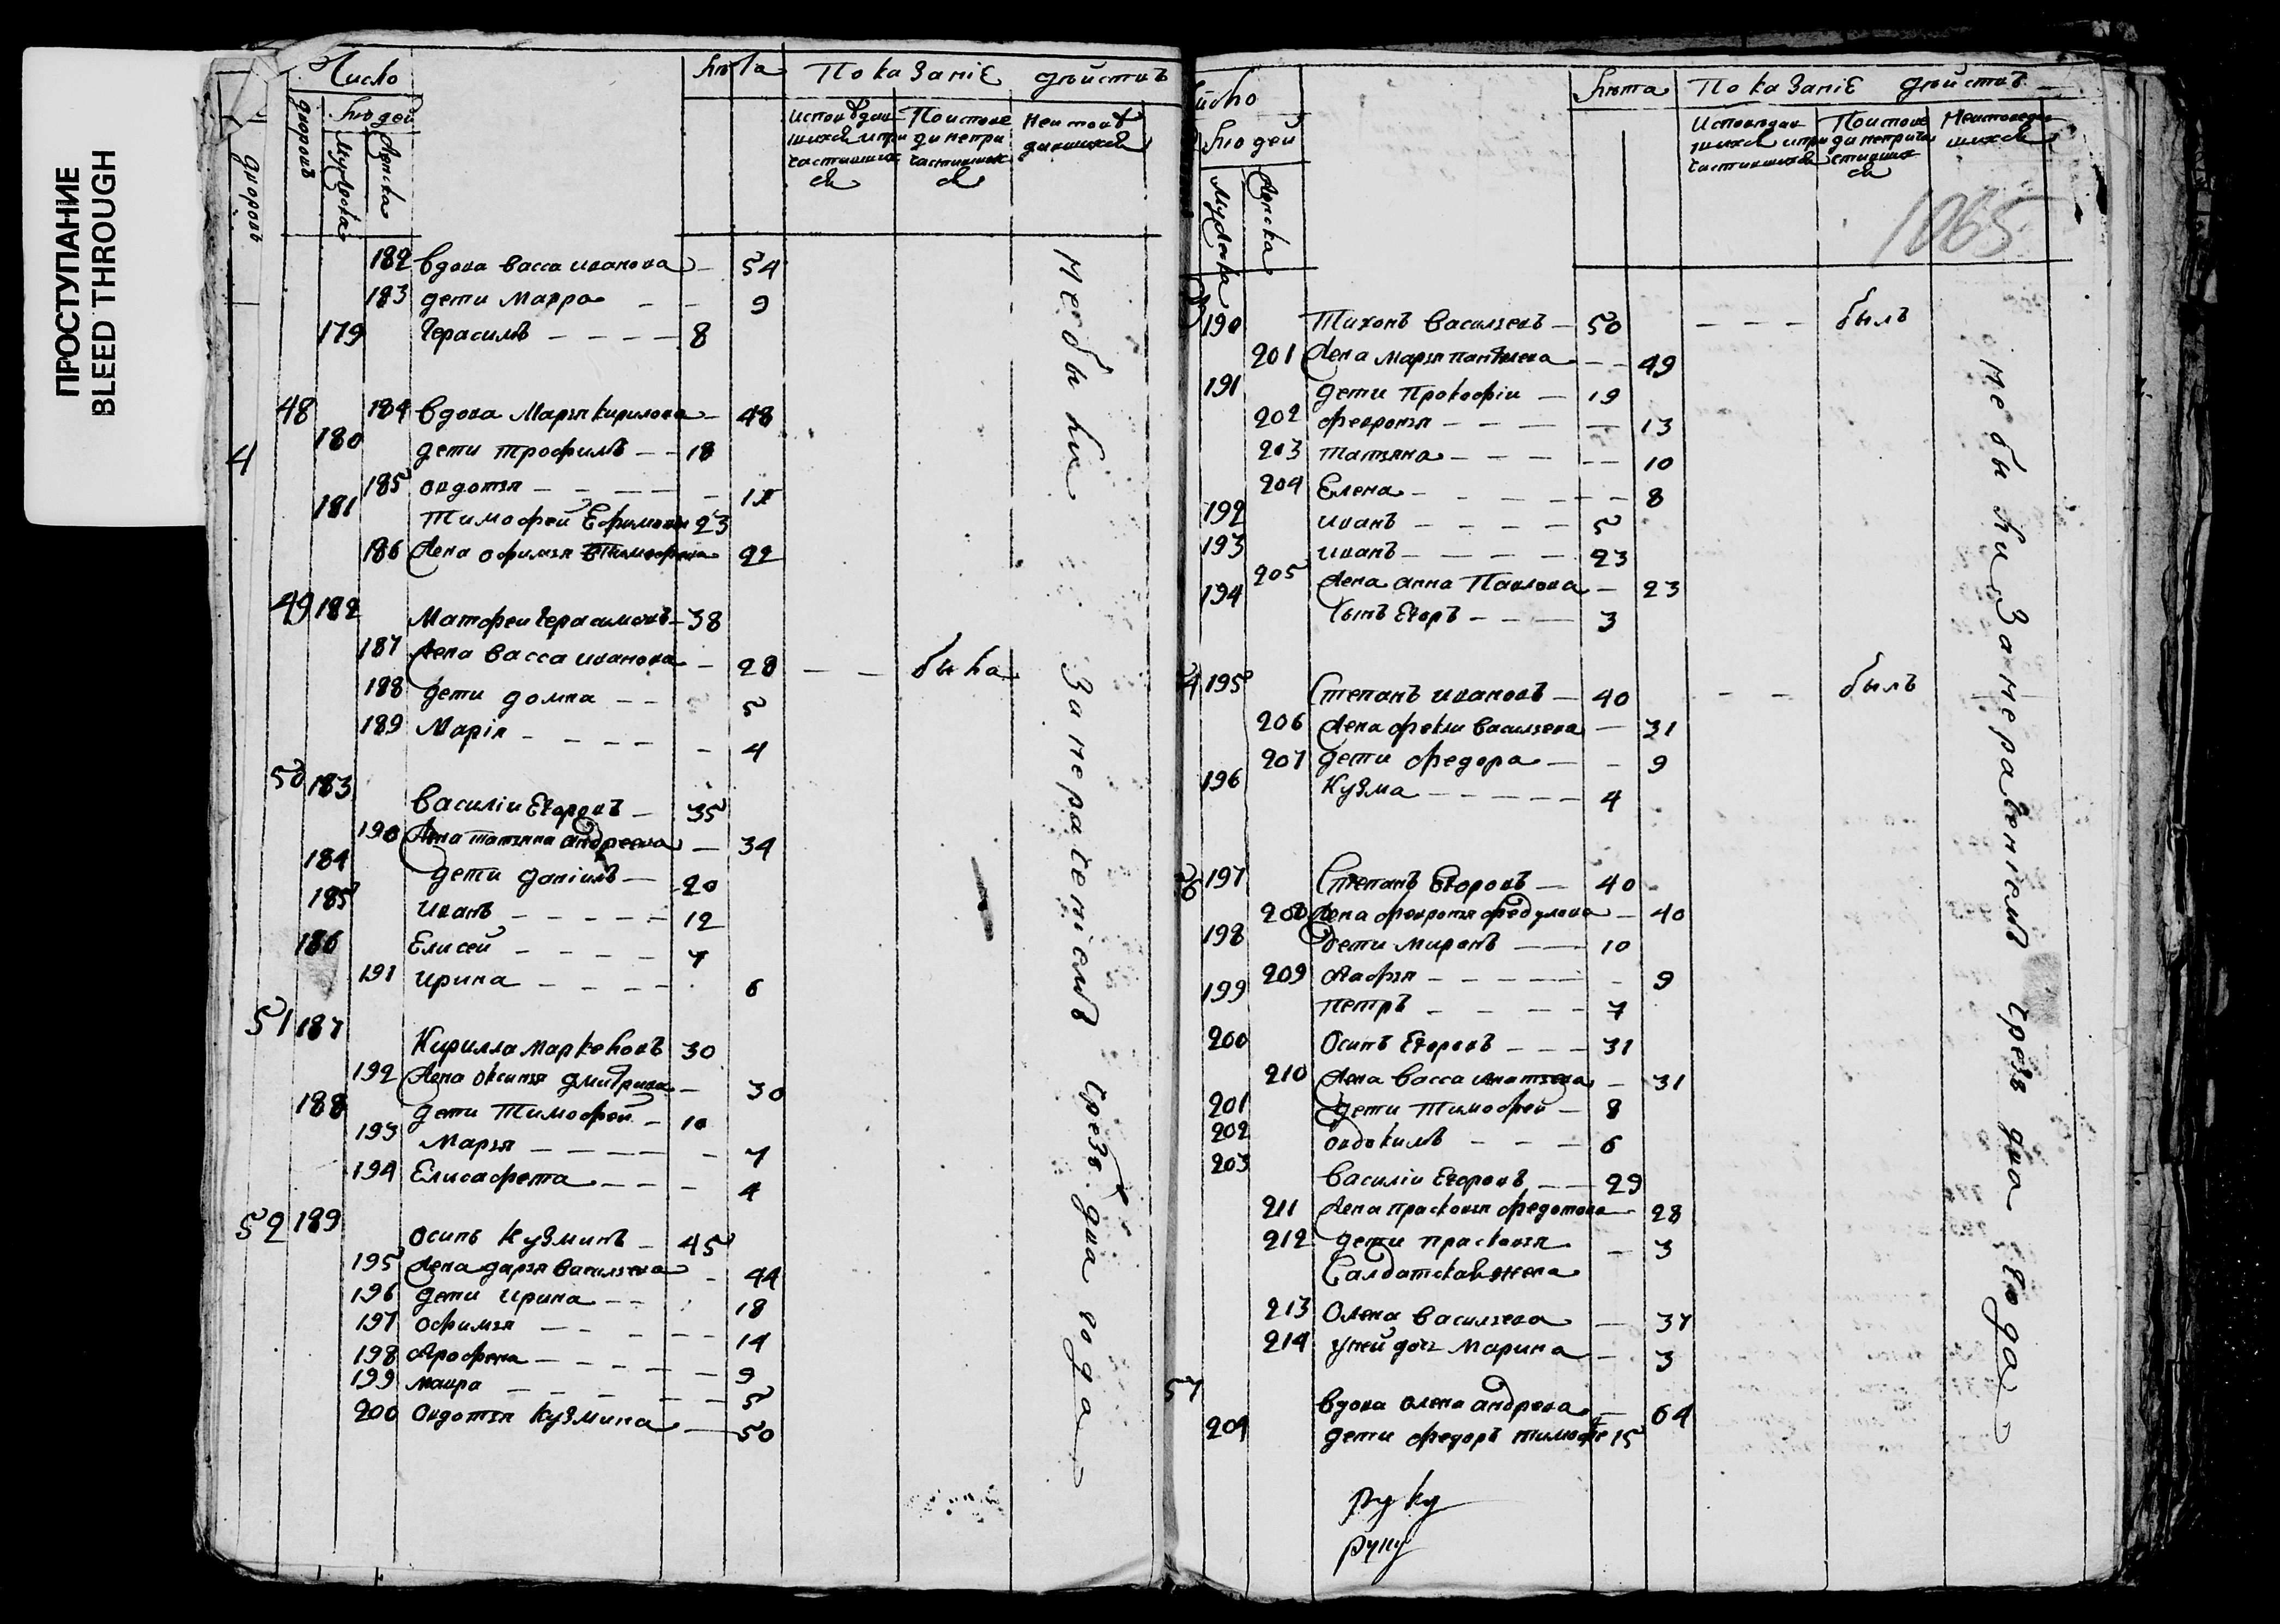 ПРОСТУПАНИЕ
BLEED THROUGH
Число
лѣта
Показаніе дѣйствъ
дворовъ
людей
мужеска
женска
дворовъ
исповѣдавшихся и причастившихся
По исповѣди непричастившихся
Неисповѣдавшихся
182 вдова васса иванова — 54
183 дети Мавра — — 9
179 Герасимъ — — — — 8
48 184 вдова Марья кирилова — 48
4
180 дети трофимъ — — 18
185 овдотья — — — —
181 Тимофей Ефимовъ 23
186 жена офимья 22
49 182 Матфеи герасимовъ — 38
187 жена васса иванова — 28 — — была
188 дети домна — — 5
189 Марія — — — — 4
50 183 василіи Егоровъ — 35
190 жена татьяна андреева — 34
184 дети даніилъ — 20
185 иванъ — — — — — 12
186 Елисей — — — — 7
191 ирина — — — — 6
51 187 Кирилла Маркеловъ 30
192 жена оксинья дмитриева — 30
188 дети Тимофей — 10
193 Марья — — — — 7
194 Елисафета — — — 4
52 189 осипъ кузминъ — 45
195 жена дарья васильева — 44
196 дети ирина — — 18
197 офимья — — — — — 14
198 Агрофена — — — — — 9
199 мавра — — — — — 5
200 овдотья кузмина — 50
Не были За нерачениемъ чрезъ два года
число
лѣта
Показаніе дѣйствъ
людей
мужеска
женска
Исповѣдавшихся и причастившихся
По исповѣди непричастившихся
Неисповѣдавшихся
1065
190 Тихонъ васильевъ — 50 — — — былъ
201 жена марья — — 49
191 дети Прокофіи — 19
202 февронья — — — — 13
203 татьяна — — — — 10
204 Елена — — — — — 8
192 иванъ — — — — 5
193 иванъ — — — — 23
205 жена анна Павлова — 23
194 сынъ Егоръ — — — 3
54 195 Степанъ ивановъ — 40 — — былъ
206 жена фекла васильева — 31
207 дети федора — — 9
196 Кузма — — — — — 4
197 Степанъ Егоровъ — 40
208 жена февронья федулова — 40
198 дети миронъ — — 10
209 — — — — — 9
199 петръ — — — — 7
200 Осипъ Егоровъ — — — 31
210 жена васса игнатьева — 31
201 дети Тимофей — 8
202 овдокимъ — — — 6
203 василіи Егоровъ — — 29
211 жена прасковья федотова — 28
212 дети прасковья — 3
Салдатская жена
213 Олена васильева — 37
214 у ней дочь Марина — 3
57 вдова олена андреева — 64
204 дети федоръ тимофе 15
руку
руку
не были За нерачениемъ чрезъ два года